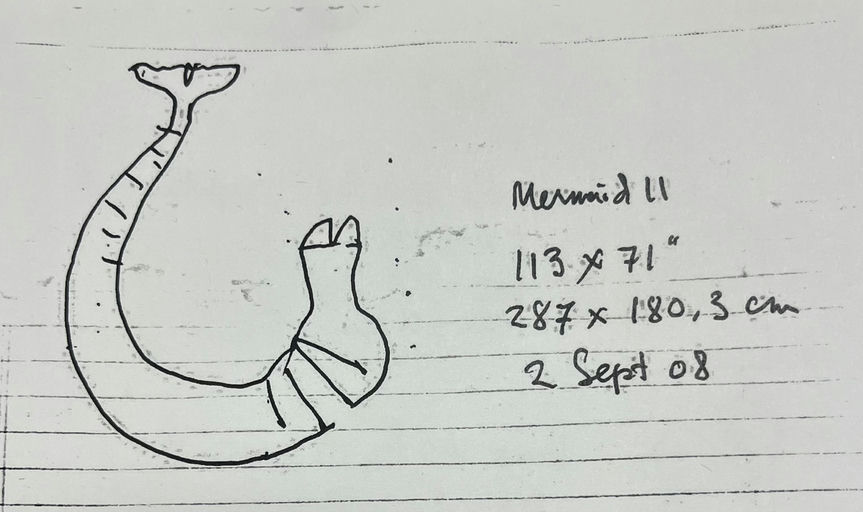 Mermaid 11
113 x 71"
287 x 180,3 cm
2 Sept 08